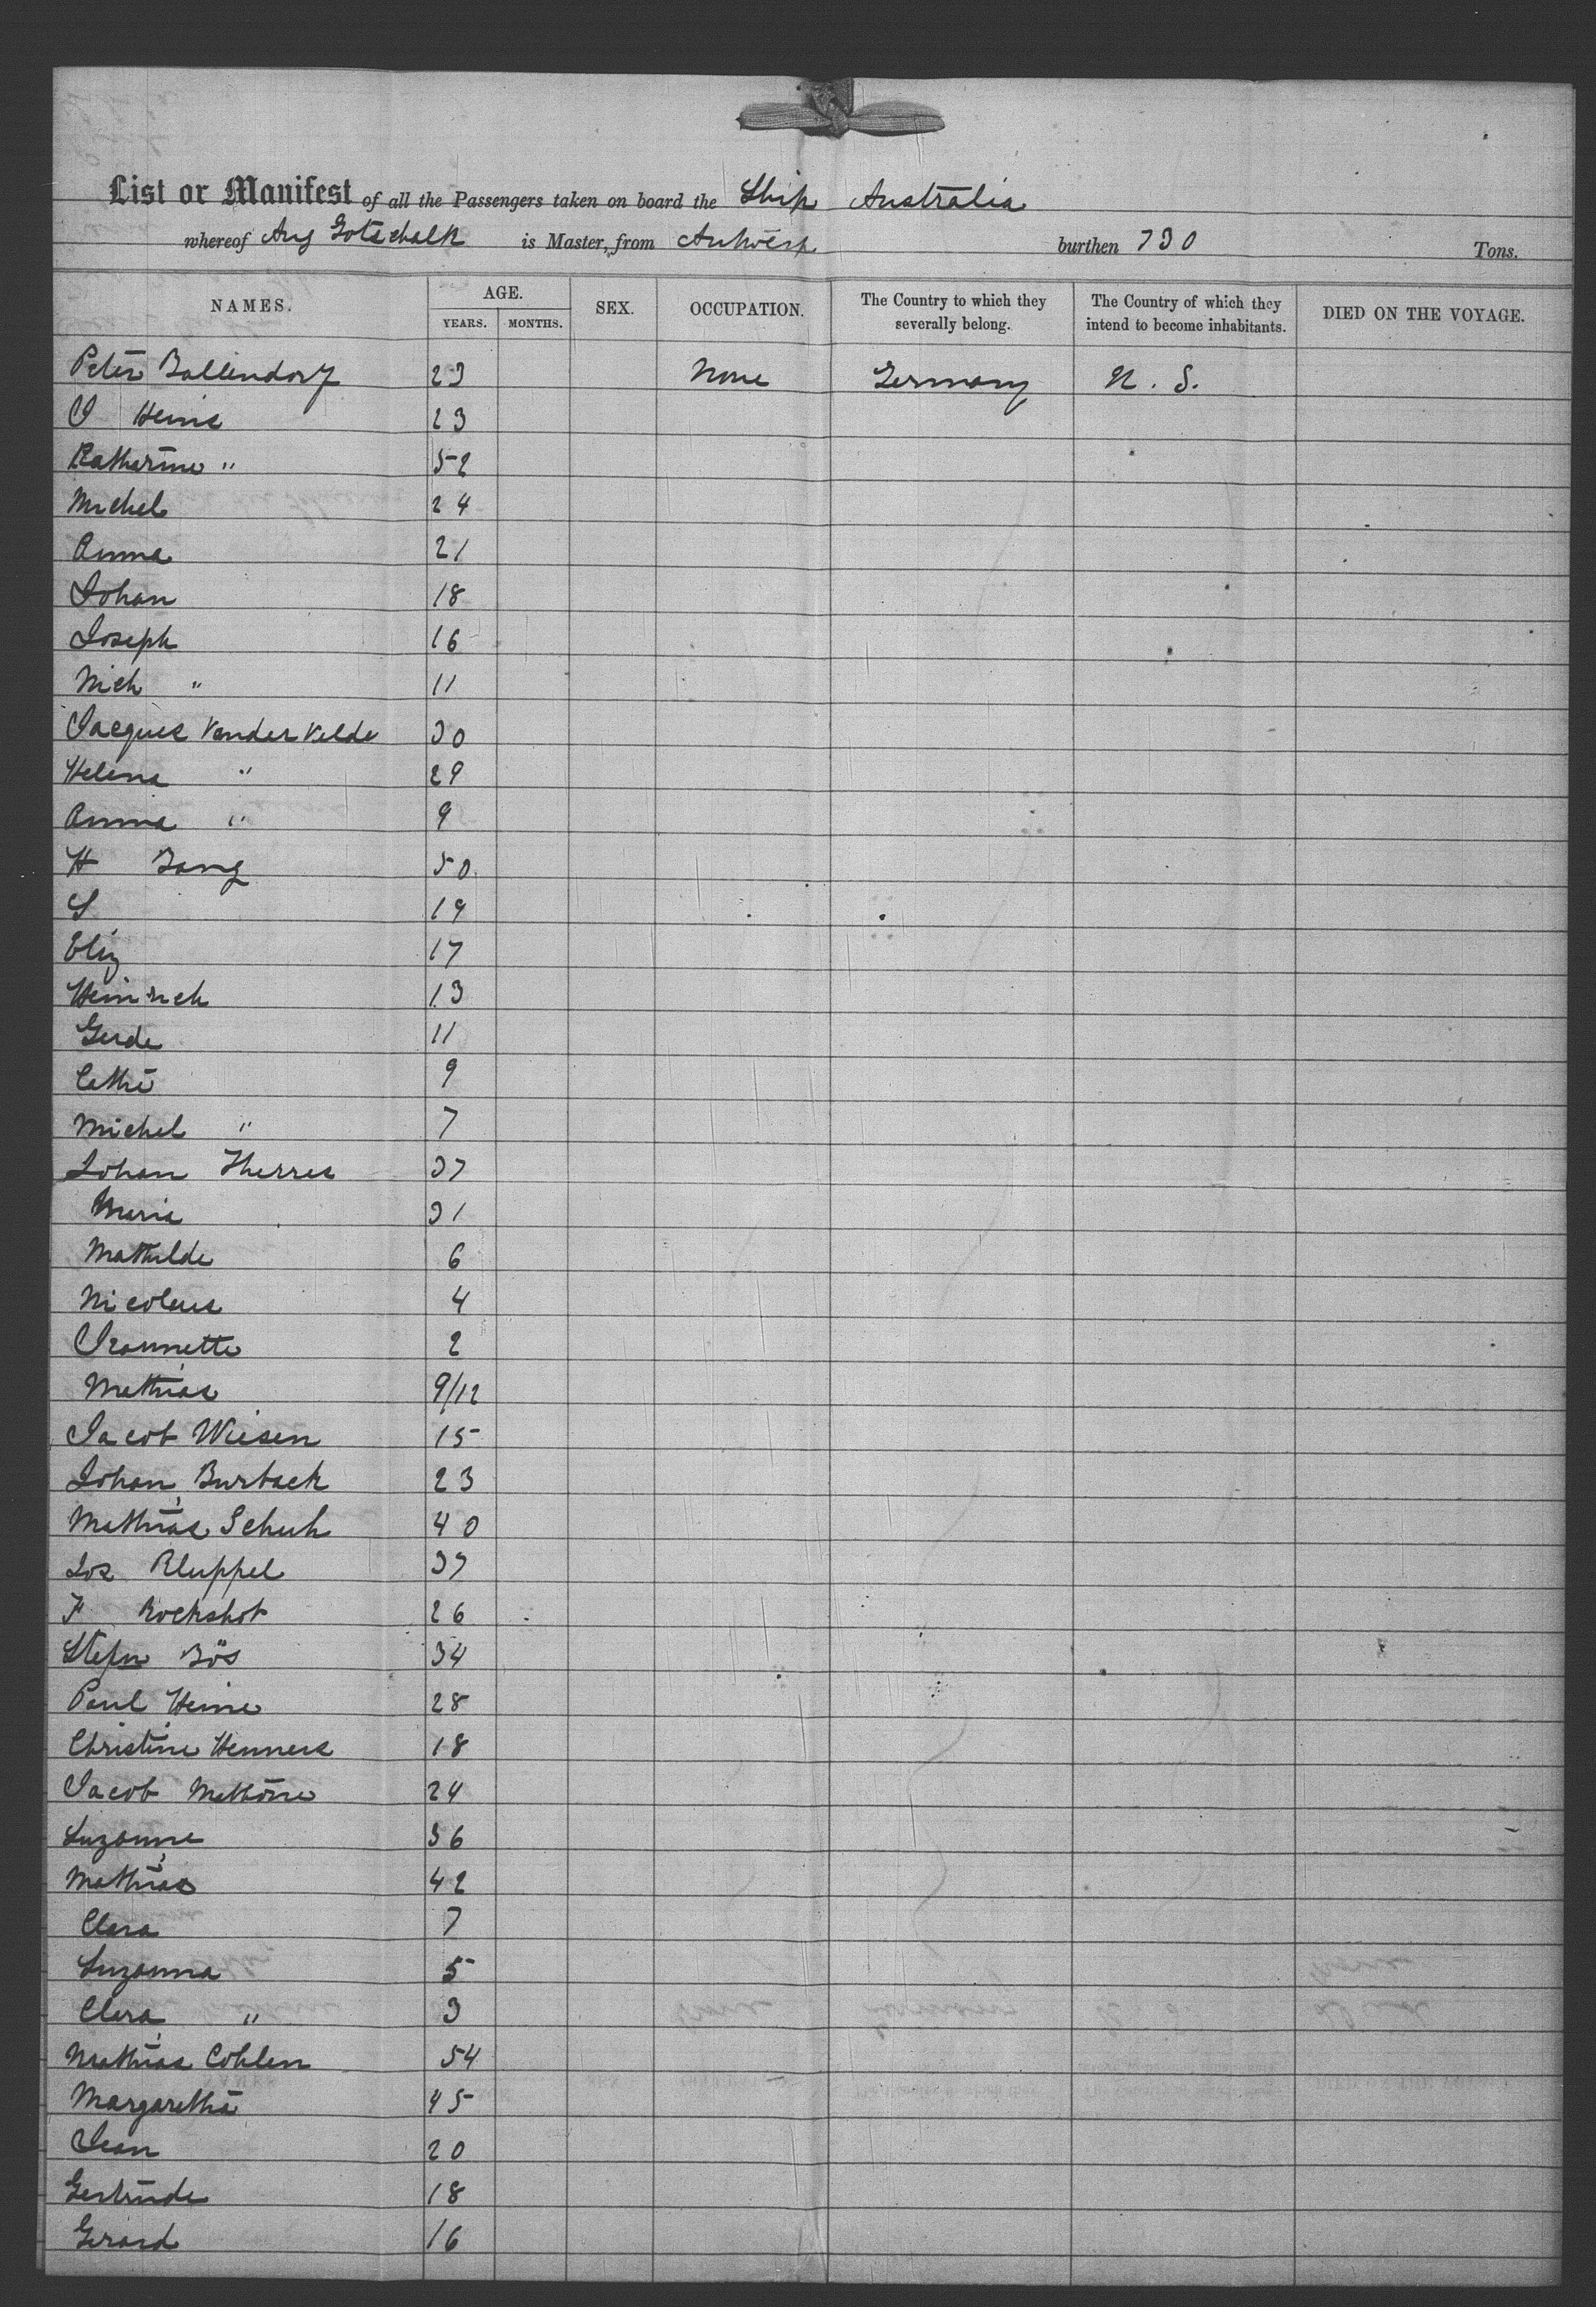 List or Manifest of all the Passengers taken on board the Ship Australia
whereof Aug Gotschalk is Master, from Antwerp burthen 730 Tons.
NAMES. AGE. SEX. OCCUPATION. The Country to which they severally belong. The Country of which they intend to become inhabitants. DIED ON THE VOYAGE.
YEARS. MONTHS.
Peter Ballendorf 23 None Germany U. S.
J Heins 23
Katharine " 52
Michel 24
Anna 21
Johan 18
Joseph 16
Nich " 11
Jacques Vander Velde 30
Helena " 29
Anna " 9
H Bang 50
S 19
Eliz 17
Heinrich 13
Gerde 11
Cathe 9
Michel " 7
Johan Therres 37
Maria 31
Mathilde 6
Nicolaus 4
Jeannette 2
Mathias 9/12
Jacob Wiesen 15
Johan Burback 23
Mathias Schuh 40
Jos Kluppel 37
F Rockshot 26
Stepn Bös 34
Paul Heine 28
Christine Henners 18
Jacob 24
Suzanne 36
Mathias 42
Clara 7
Suzanna 5
Clara " 3
Mathias Cohlen 54
Margaretha 45
Jean 20
Gertrude 18
Gerard 16